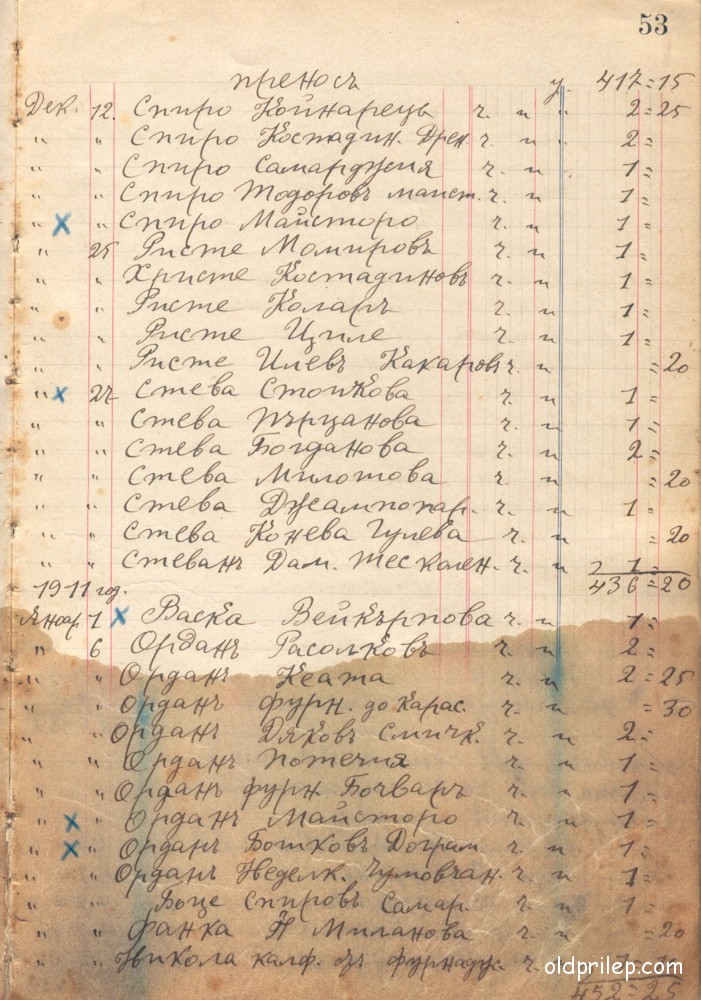 53
преносъ у. 417=15
Дек. 12 Спиро Койнарецъ ч. и " 2=25
" " Спиро Костадин. Дрен. ч. и " 2=
" " Спиро Самарджия ч. и " 1=
" " Спиро Тодоровъ маист. ч. и 1=
" х " Спиро Майсторо ч. и 1=
" 25 Ристе Момировъ ч. и 1=
" " Христе Костадиновъ ч. и 1=
" " Ристе Коларъ ч. и 1=
" " Ристе Циле ч. и 1=
" " Ристе Илевъ Какаровъ ч. и =20
" х 27 Стева Стойкова ч. и 1=
" " Стева Пърцанова ч. и 1=
" " Стева Богданова ч. и 2=
" " Стева Милошова ч. и =20
" " Стева Джампопар. ч. и 1=
" " Стева Конева Гулева ч. и =20
" " Стеванъ Дам. ч. и 1=
1911 год. 436=20
Януар. 1 х Васка Вейкърпова ч. и 1=
" 6 Орданъ Расолковъ ч. и 2=
" " Орданъ Кеата ч. и 2=25
" " Орданъ фурн. до Карас. ч. и =30
" " Орданъ Дяковъ Смичк. ч. и 2=
" " Орданъ Потечия ч. и 1=
" " Орданъ фурн Бочваръ ч. и 1=
" х " Орданъ Майсторо ч. и 1=
" х " Орданъ Бошковъ Дограм. ч. и 1=
" " Орданъ Неделк. Чумовчан. ч. и 1=
" " Боце Спировъ Самар. ч. и 1=
" " Фанка Н Миланова ч. и =20
" " Никола калф. ч.
oldprilep.com
452=25